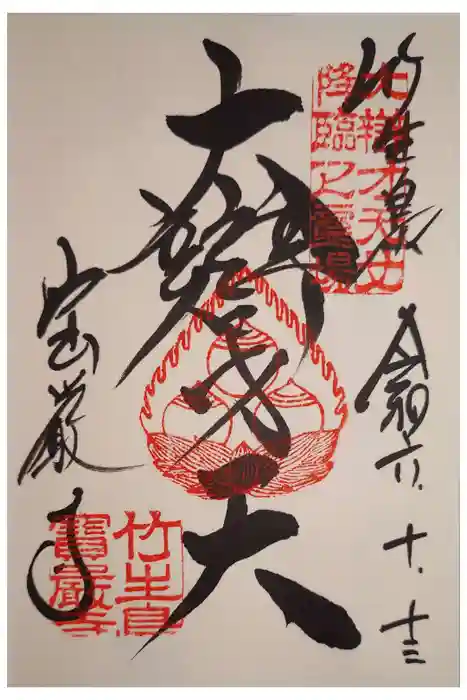 竹生島
令和六.十.十三
大辯才天女
降臨之靈場
大辯才天
宝厳寺
竹生島
寶嚴寺